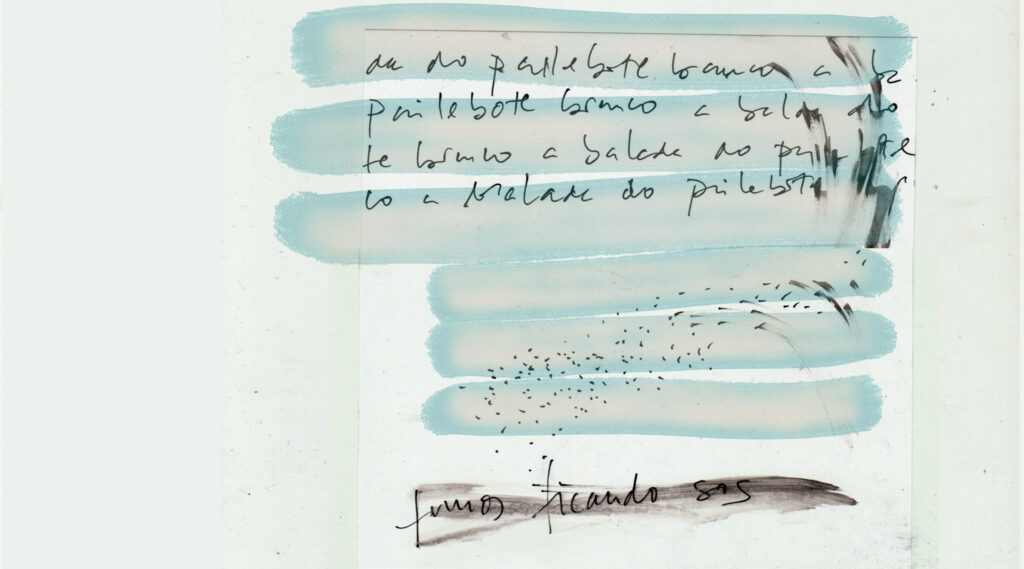 da do pailebote branco a ba
pailebote branco a balada do
te branco a balada do pailebote
co a balada do pailebote
fumos ficando sós